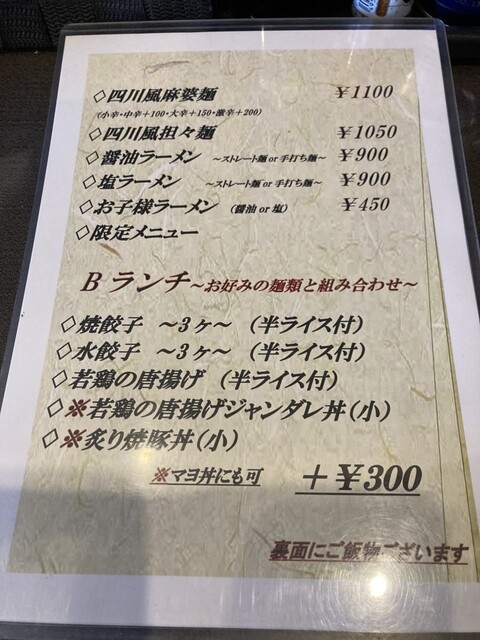 ◇四川風麻婆麺 ￥1100
(小辛・中辛+100・大辛+150・激辛+200)
◇四川風担々麺 ￥1050
◇醤油ラーメン ～ストレート麺 or 手打ち麺～ ￥900
◇塩ラーメン ～ストレート麺 or 手打ち麺～ ￥900
◇お子様ラーメン (醤油 or 塩) ￥450
◇限定メニュー
B ランチ～お好みの麺類と組み合わせ～
◇焼餃子 ～3ヶ～ (半ライス付)
◇水餃子 ～3ヶ～ (半ライス付)
◇若鶏の唐揚げ (半ライス付)
◇※若鶏の唐揚げジャンダレ丼(小)
◇※炙り焼豚丼(小)
※マヨ丼にも可 +￥300
裏面にご飯物ございます